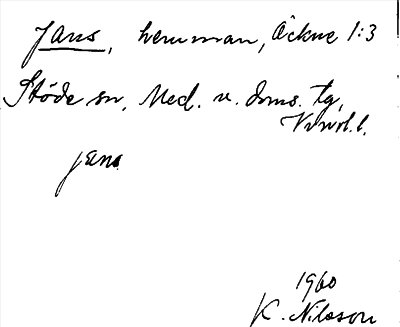 Jans, hemman, Öckne 1:3
Stöde sn, Med. v. doms. tg,
Vnorrl.
jans
1960
K. Nilsson